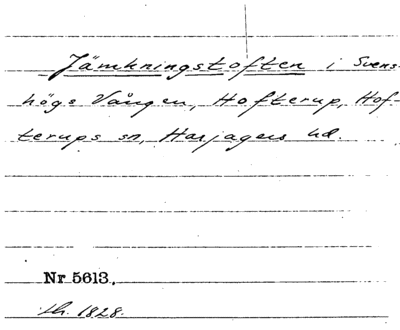 Jämkningstoften i Svens-
högs Vången, Hofterup, Hof-
terups sn, Harjagers hd.
Nr 5613.
1828.